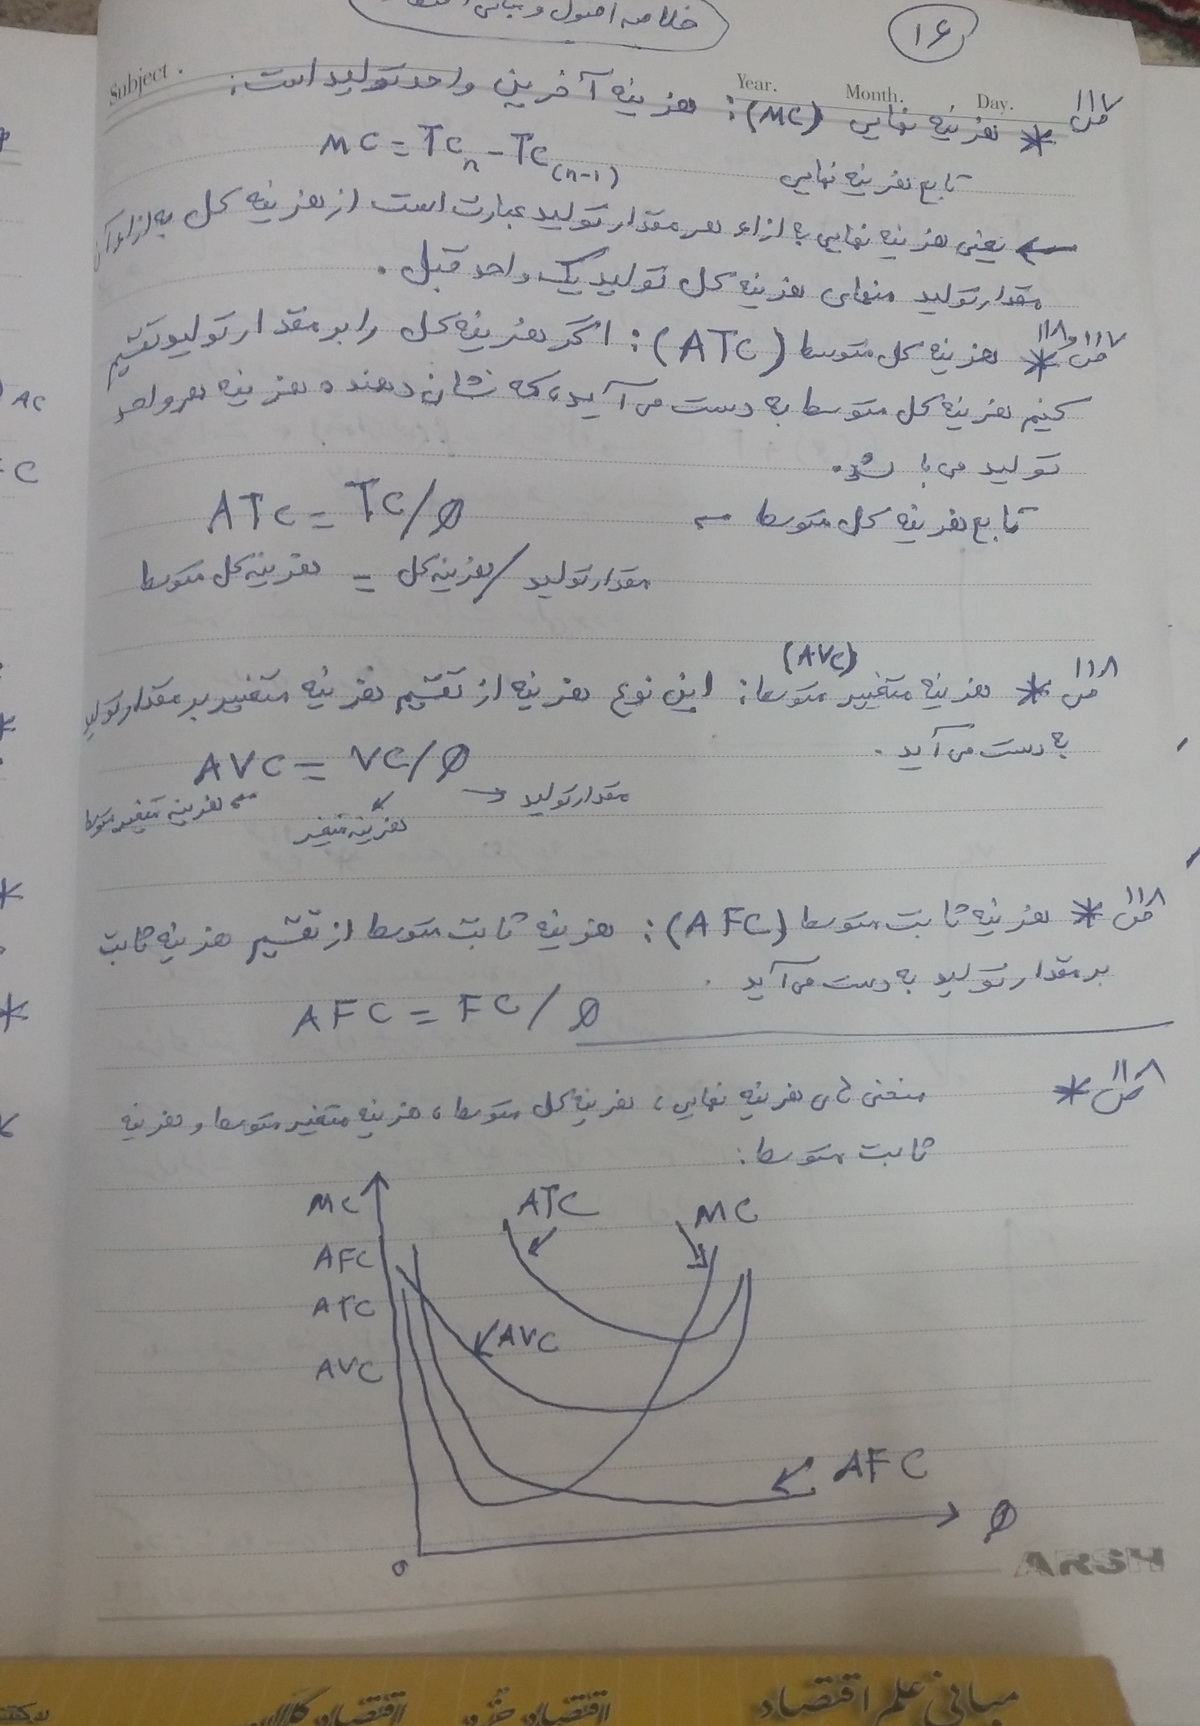 خلاصه اصول و مبانی
۱۶
Subject . Year. Month. Day.
ص ۱۱۷ * هزینه نهایی (MC): هزینه آخرین واحد تولید است:
تابع هزینه نهایی MC = TCn - TC(n-1)
← یعنی هزینه نهایی به ازاء هر مقدار تولید عبارت است از هزینه کل به ازاء آن
مقدار تولید منهای هزینه کل تولید یک واحد قبل .
ص ۱۱۷ و ۱۱۸ * هزینه کل متوسط (ATC): اگر هزینه کل را بر مقدار تولید تقسیم
کنیم هزینه کل متوسط به دست می آید، که نشان دهنده هزینه هر واحد
تولید می باشد.
تابع هزینه کل متوسط ← ATC = TC/Q
مقدار تولید / هزینه کل = هزینه کل متوسط
ص ۱۱۸ * هزینه متغییر متوسط (AVC): این نوع هزینه از تقسیم هزینه متغییر بر مقدار تولید
به دست می آید .
AVC = VC/Q
→ مقدار تولید
هزینه متغیر
هزینه متغیر متوسط
ص ۱۱۸ * هزینه ثابت متوسط (AFC): هزینه ثابت متوسط از تقسیم هزینه ثابت
بر مقدار تولید به دست می آید .
AFC = FC/Q
ص ۱۱۸ * منحنی های هزینه نهایی، هزینه کل متوسط، هزینه متغیر متوسط و هزینه
ثابت متوسط:
MC ATC MC
AFC
ATC
AVC
AVC
AFC
Q
0
ARSH
مبانی علم اقتصاد
اقتصاد خرد
اقتصاد کلان
AC
C